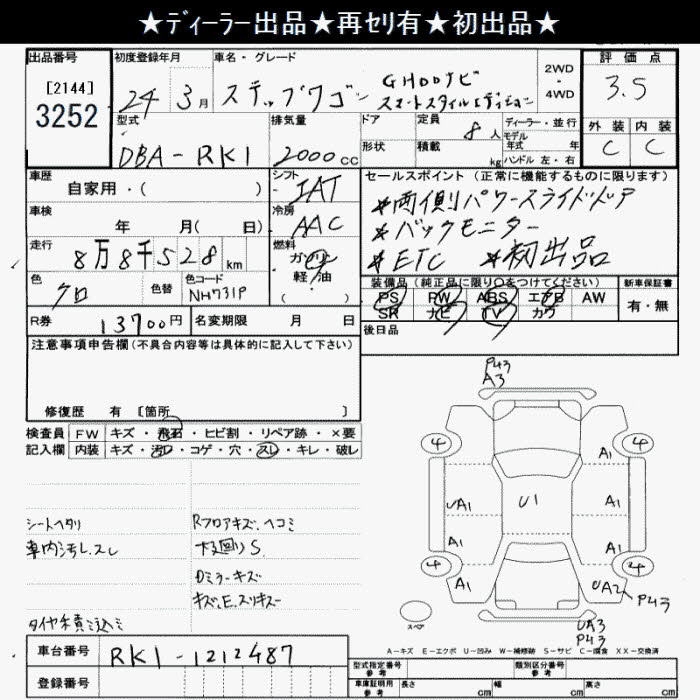 ★ディーラー出品★再セリ有★初出品★
出品番号 初度登録年月 車名・グレード 2WD 評価点
[2144] 24年 3月 ステップワゴン GHDDナビ 4WD 3.5
3252 スマートスタイルエディション
型式 排気量 ドア 定員 8人 ディーラー・並行 外装 内装
DBA-RK1 2000cc 形状 積載 kg モデル年式 年 C C
ハンドル 左・右
車歴 シフト セールスポイント (正常に機能するものに限ります)
自家用・( ) IAT *両側パワースライドドア
車検 冷房 *バックモニター
年 月( 日) AAC *ETC *初出品
走行 燃料
8万8千528km ガソリン
色 色替 色コード 軽油
クロ NH731P ( )
装備品 (純正品に限り○をつけてください) 新車保証書
PS PW ABS エアB AW 有・無
SR ナビ TV カワ
R券 13700円 名変期限 月 日 後日品
注意事項申告欄(不具合内容等は具体的に記入して下さい)
修復歴 有 [箇所 ]
検査員 FW キズ・飛石・ヒビ割・リペア跡・×要
記入欄 内装 キズ・汚レ・コゲ・穴・スレ・キレ・破レ
P43
A3
4 4
A1
UA1 U1 A1
A1 A1
4 4
A1 UA2 P43
スペア UA3
P43
シートヘタリ Rフロアキズ、ヘコミ
車内汚レ、スレ
Dミラーキズ
タイヤ積ミ込ミ
A-キズ E-エクボ U-凹み W-補修跡 S-サビ C-腐食 XX-交換済
車台番号 RK1-1212487
登録番号
型式指定番号 参考 類別区分番号 参考
車庫証明用 参考 長さ cm 幅 cm 高さ cm